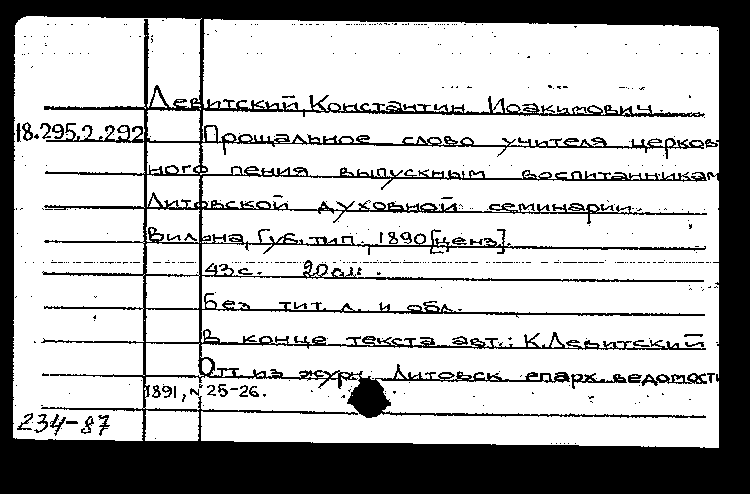 Левитский, Константин Иоакимович.
18.295.2.292
Прощальное слово учителя церков
ного пения выпускным воспитанникам
Литовской духовной семинарии.
Вильна, Губ. тип., 1890 [ценз].
43 с. 20 см.
Без тит. л. и обл.
В конце текста авт.: К. Левитский.
Отт. из журн. Литовск. епарх. ведомости
1891, № 25-26.
234-87